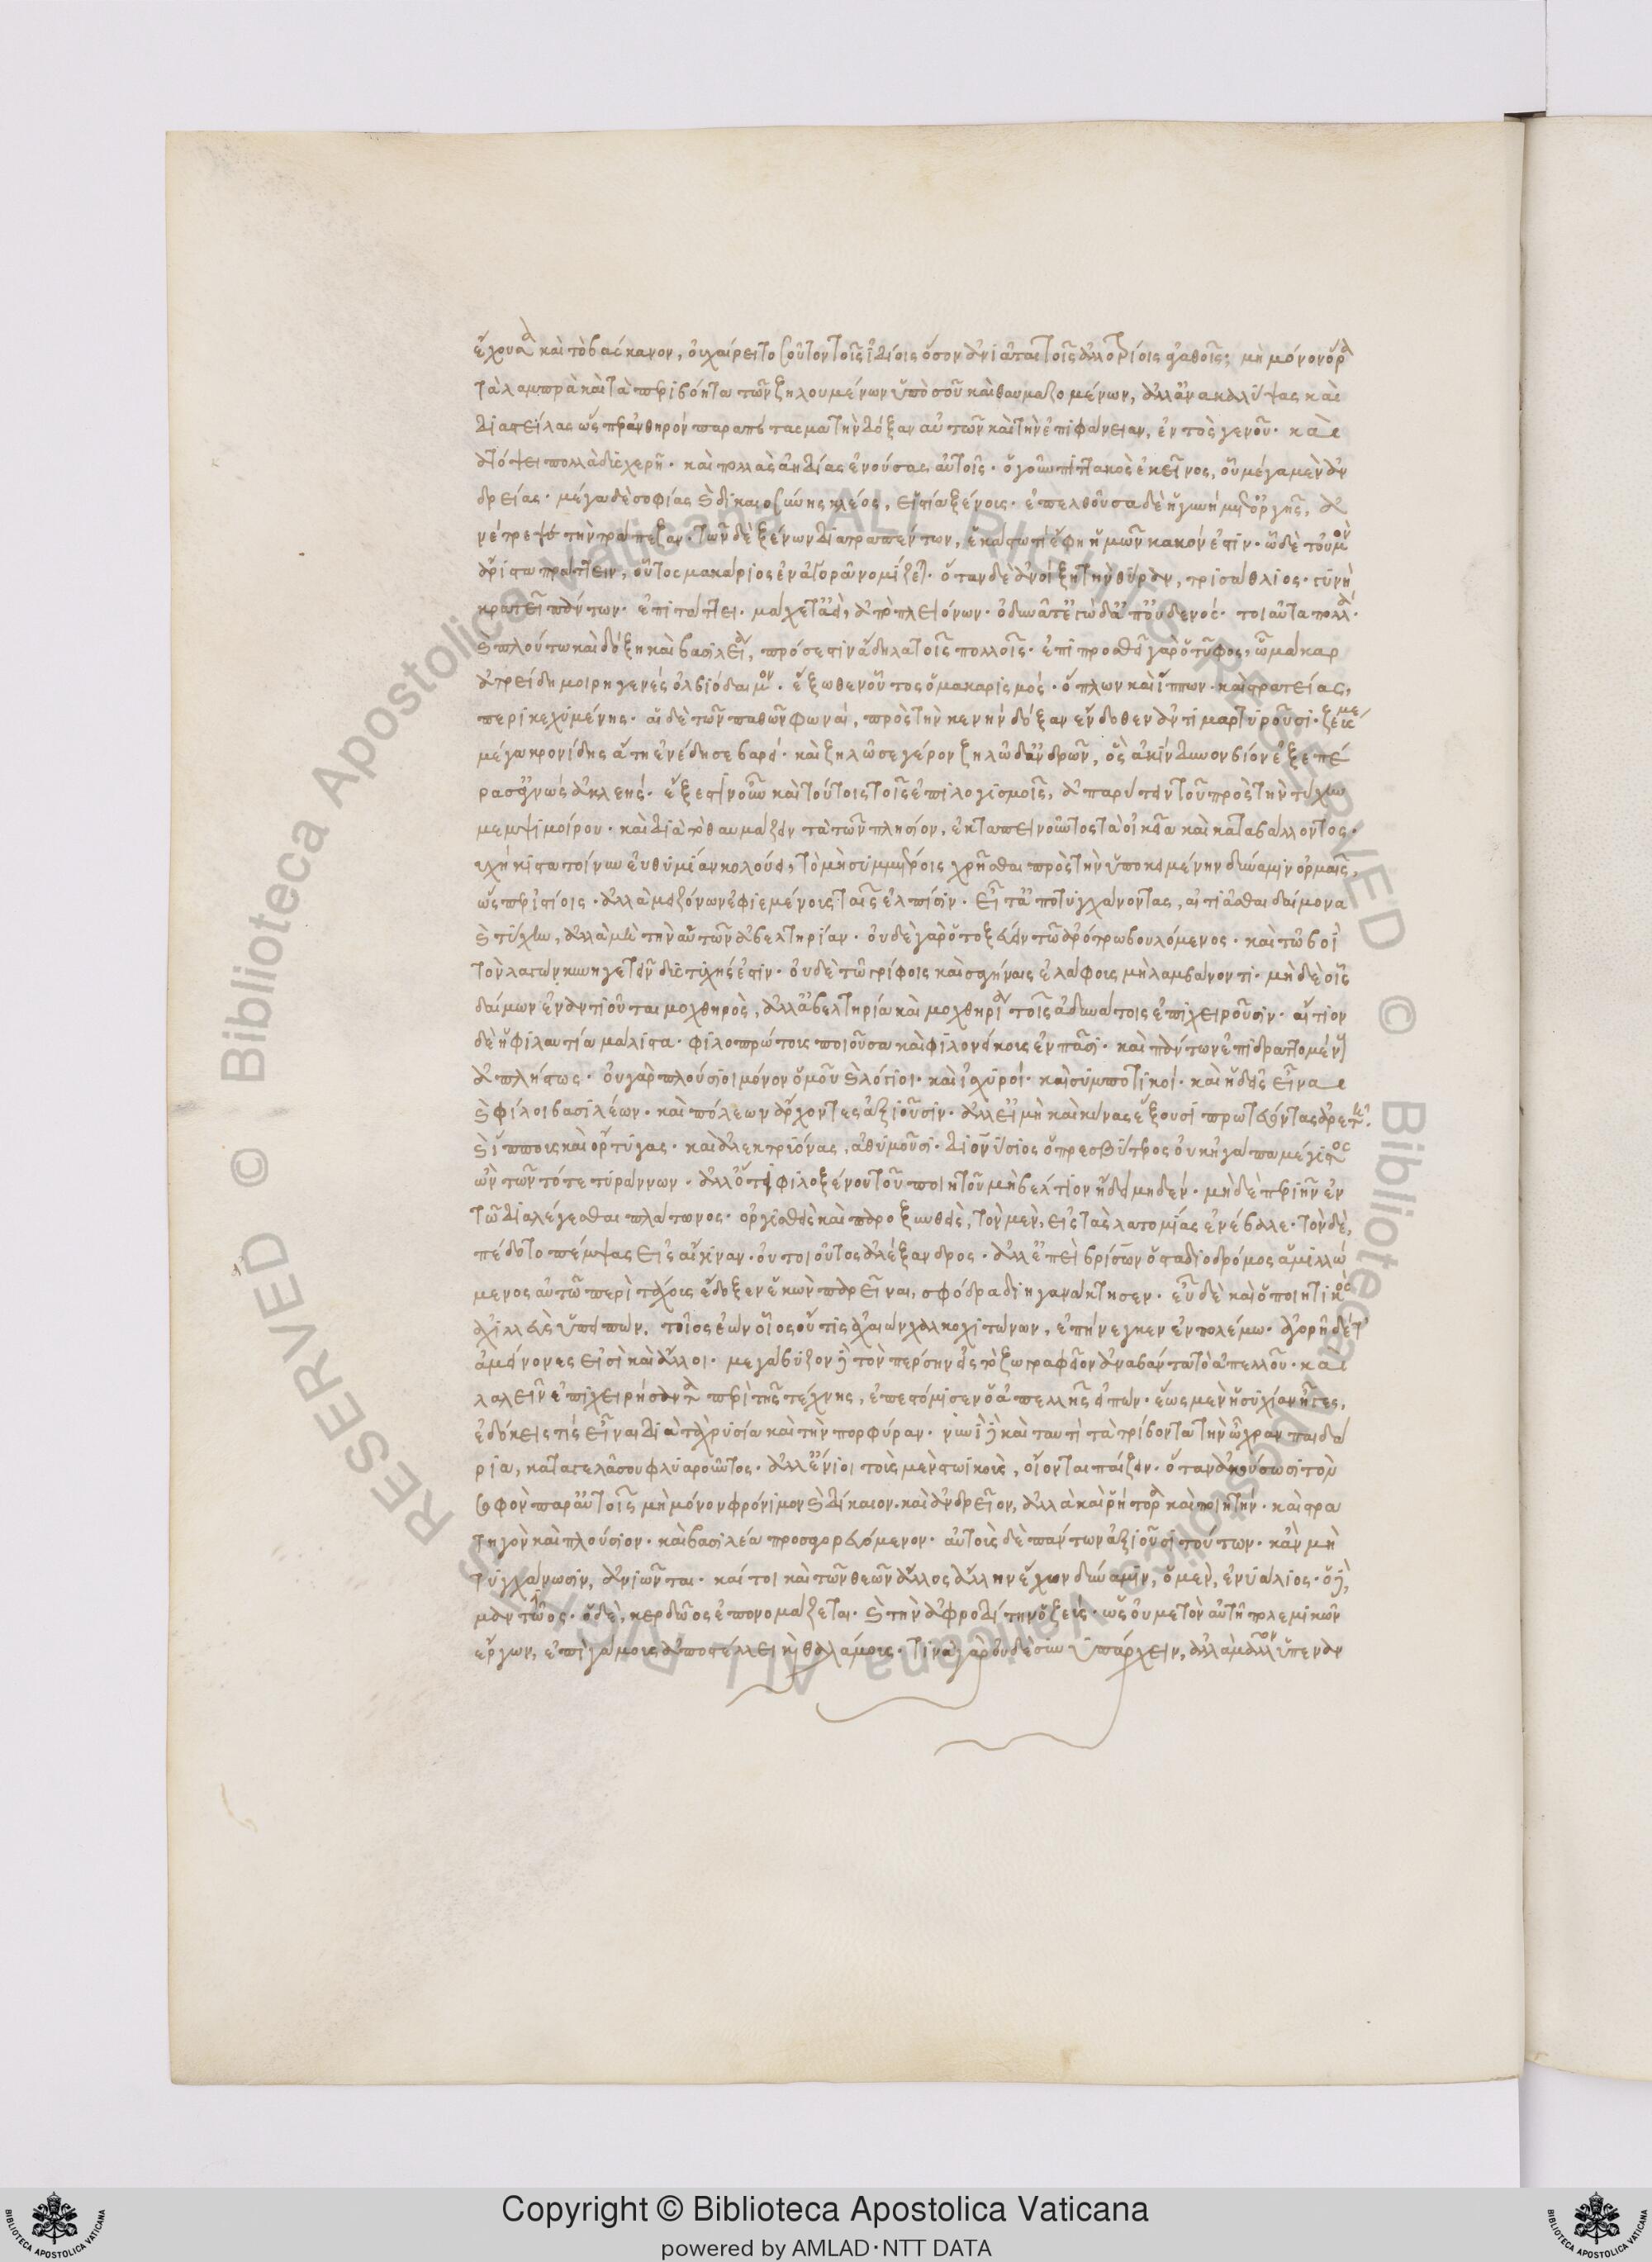 ἔχουσα καὶ τὸ βάσκανον, οὐ χαίρει τοσοῦτον τοῖς ἰδίοις ὅσον ἀνιᾶται τοῖς ἀλλοτρίοις ἀγαθοῖς· μὴ μόνον ὅρα
τὰ λαμπρὰ καὶ τὰ περιβόητα τῶν ζηλουμένων ὑπὸ σοῦ καὶ θαυμαζομένων, ἀλλ' ἀνακαλύψας καὶ
διαστείλας ὥσπερ ἀνθηρὸν παραπέτασμα τὴν δόξαν αὐτῶν καὶ τὴν ἐπιφάνειαν, ἐντὸς γενοῦ· καὶ
κατόψει πολλὰ δυσχερῆ· καὶ πολλὰς ἀηδίας ἐνούσας αὐτοῖς· ὁ γοῦν πιττακὸς ἐκεῖνος, οὗ μέγα μὲν ἀν
δρείας· μέγα δὲ σοφίας καὶ δικαιοσύνης κλέος, εἱστία ξένους· ἐπελθοῦσα δὲ ἡ γυνὴ μετ' ὀργῆς, ἀ
νέτρεψε τὴν τράπεζαν· τῶν δὲ ξένων διατραπέντων, ἑκάστῳ τι ἔφη ἡμῶν κακόν ἐστιν· ᾧ δὲ τοὐμὸν
ἄριστα πράττειν, οὗτος μακάριος ἐν ἀγορᾷ νομίζεται· ὅταν δὲ ἀνοίξῃ τὴν θύραν, τρισάθλιος· γυνὴ
κρατεῖ πάντων· ἐπιτάττει· μάχεται ἀεί, ἀπὸ πλειόνων· ὀδυνᾶται ἐγὼ δ' ἀπ' οὐδενός· τοιαῦτα πολλὰ·
καὶ πλούτῳ καὶ δόξῃ καὶ βασιλείᾳ, πρόσεστιν ἄδηλα τοῖς πολλοῖς· ἐπιπροσθεῖ γὰρ ὁ τῦφος, ὦ μάκαρ
ἀτρείδη μοιρηγενὲς ὀλβιόδαιμον· ἔξωθεν οὗτος ὁ μακαρισμός· ὅπλων καὶ ἵππων· καὶ στρατείας,
περικεχυμένης· αἱ δὲ τῶν παθῶν φωναί, πρὸς τὴν κενὴν δόξαν ἔνδοθεν ἀντιμαρτυροῦσι· ζεύς με
μέγα κρονίδης ἄτῃ ἐνέδησε βαρείᾳ· καὶ ζηλῶ σε γέρον ζηλῶ δ' ἀνδρῶν, ὃς ἀκίνδυνον βίον ἐξεπέ
ρασ' ἀγνὼς ἀκλεής· ἔξεστιν οὖν καὶ τούτοις τοῖς ἐπιλογισμοῖς, ἀπαρύτειν τοῦ πρὸς τὴν τύχην
μεμψιμοίρου· καὶ διὰ τὸ θαυμάζειν τὰ τῶν πλησίον, ἐκταπεινοῦντος τὰ οἰκεῖα καὶ καταβάλλοντος·
οὐχ ἥκιστα τοίνυν εὐθυμίαν κολούει, τὸ μὴ συμμέτροις χρῆσθαι πρὸς τὴν ὑποκειμένην δύναμιν ὁρμαῖς,
ὥσπερ ἱστίοις· ἀλλὰ μειζόνων ἐφιεμένους ταῖς ἐλπίσιν· εἶτα ἀποτυγχάνοντας, αἰτιᾶσθαι δαίμονα
καὶ τύχην, ἀλλὰ μὴ τὴν αὑτῶν ἀβελτηρίαν· οὐδὲ γὰρ ὁ τοξεύειν τῷ ἀρότρῳ βουλόμενος· καὶ τῷ βοῒ
τὸν λαγὼν κυνηγετεῖν δυστυχής ἐστιν· οὐδὲ τῷ γρίφοις καὶ σαγήναις ἐλάφους μὴ λαμβάνοντι· μὴ δὲ οἷς
δαίμων ἐναντιοῦται μοχθηρὸς, ἀλλ' ἀβελτηρίᾳ καὶ μοχθηρίᾳ τοῖς ἀδυνάτοις ἐπιχειροῦσιν· αἴτιον
δὲ ἡ φιλαυτία μάλιστα· φιλοπρώτους ποιοῦσα καὶ φιλονείκους ἐν πᾶσι· καὶ πάντων ἐπιδραττομένους
ἀπλήστως· οὐ γὰρ πλούσιοι μόνον ὁμοῦ καὶ λόγιοι· καὶ ἰσχυροί· καὶ συμποτικοί· καὶ ἡδεῖς εἶναι
καὶ φίλοι βασιλέων· καὶ πόλεων ἄρχοντες ἀξιοῦσιν· ἀλλ' εἰ μὴ καὶ κύνας ἕξουσι πρωτεύοντας ἀρετῇ·
καὶ ἵππους καὶ ὄρτυγας· καὶ ἀλεκτρυόνας, ἀθυμοῦσι· διονύσιος ὁ πρεσβύτερος οὐκ ἠγάπα μέγιστος
ὢν τῶν τότε τυράννων· ἀλλ' ὅτι φιλοξένου τοῦ ποιητοῦ μὴ βέλτιον ᾖδε μηδέν· μὴ δὲ περιῆν ἐν
τῷ διαλέγεσθαι πλάτωνος· ὀργισθεὶς καὶ παροξυνθεὶς, τὸν μὲν, εἰς τὰς λατομίας ἐνέβαλε· τὸν δὲ, ἀ
πέδοτο πέμψας εἰς αἴγιναν· οὐ τοιοῦτος ἀλέξανδρος· ἀλλ' ἐπεὶ βρίσων ὁ σταδιοδρόμος ἁμιλλώ
μενος αὐτῷ περὶ τάχους ἔδοξεν ἑκὼν παρεῖναι, σφόδρα διηγανάκτησεν· εὖ δὲ καὶ ὁ ποιητικὸς
ἀχιλλεὺς ὑπειπών, τοῖος ἐὼν οἷος οὔτις ἀχαιῶν χαλκοχιτώνων, ἐπήνεγκεν ἐν πολέμῳ· ἀγορῇ δέ τ'
ἀμείνονες εἰσὶ καὶ ἄλλοι· μεγάβυζον δὲ τὸν πέρσην εἰς τὸ ζωγραφεῖον ἀναβάντα τὸ ἀπελλοῦ· καὶ
λαλεῖν ἐπιχειρήσαντα περὶ τῆς τέχνης, ἐπεστόμισεν ὁ ἀπελλῆς εἰπών· ἕως μὲν ἡσυχίαν ἦγες,
ἐδόκεις τις εἶναι διὰ τὰ χρυσία καὶ τὴν πορφύραν· νυνὶ δὲ καὶ ταυτὶ τὰ τρίβοντα τὴν ὤχραν παιδά
ρια, καταγελᾷ σου φλυαροῦντος· ἀλλ' ἔνιοι τοὺς μὲν στωικοὺς, οἴονται παίζειν· ὅταν ἀκούσωσι τὸν
σοφὸν παρ' αὐτοῖς, μὴ μόνον φρόνιμον καὶ δίκαιον· καὶ ἀνδρεῖον, ἀλλὰ καὶ ῥήτορα καὶ ποιητήν· καὶ στρα
τηγὸν καὶ πλούσιον· καὶ βασιλέα προσαγορευόμενον· αὐτοὺς δὲ πάντων ἀξιοῦσι τούτων· κἂν μὴ
τυγχάνωσιν, ἀνιῶνται· καίτοι καὶ τῶν θεῶν ἄλλος ἄλλην ἔχων δύναμιν, ὁ μὲν, ἐνυάλιος· ὁ δὲ,
μαντῷος· ὁ δὲ, κερδῷος ἐπονομάζεται· καὶ τὴν ἀφροδίτην ὁ ζεὺς· ὡς οὐ μετὸν αὐτῇ πολεμικῶν
ἔργων, ἐπὶ γάμους ἀποστέλλει καὶ θαλάμους· τινὰ γὰρ οὐδὲ συνυπάρχειν, ἀλλὰ μᾶλλον ὑπεναν
Copyright © Biblioteca Apostolica Vaticana
powered by AMLAD·NTT DATA